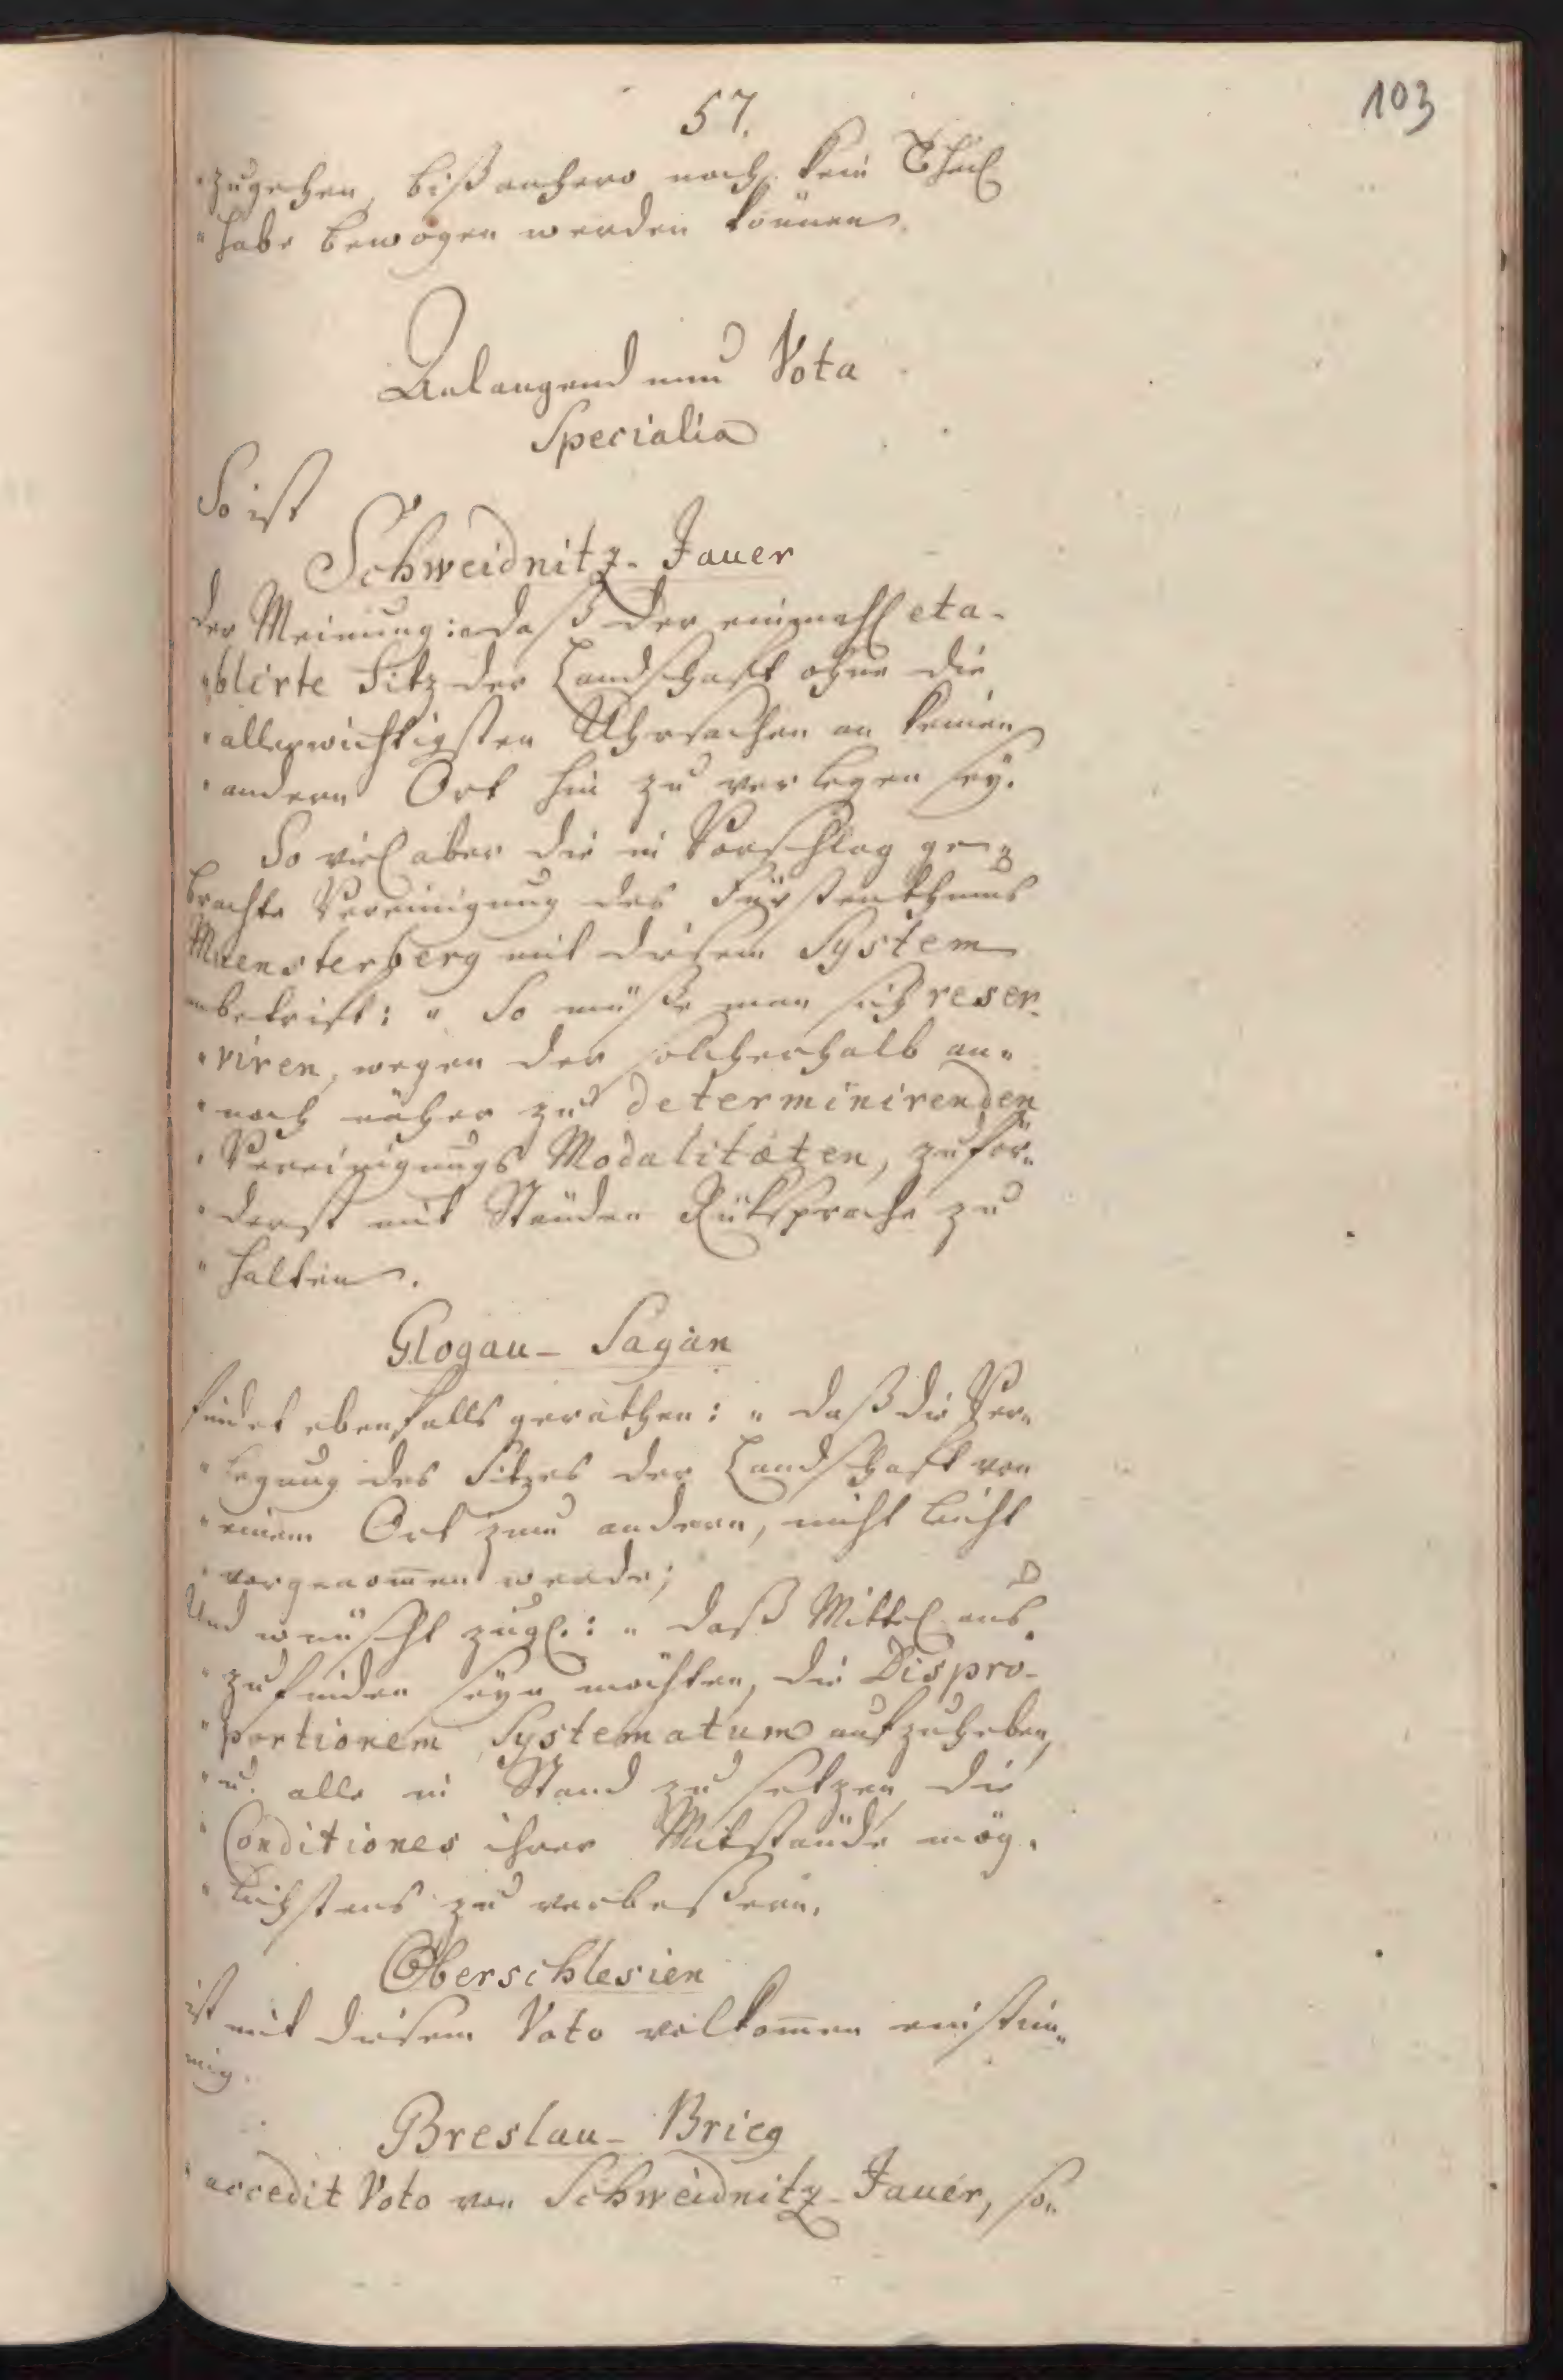 57.
103
"zugehen, bißanhero noch kein Theil
"habe bewogen werden können.
Anlangend nun Vota
Specialia
So ist
Schweidnitz-Jauer
der Meinung: "daß der einmahl eta-
"blirte Sitz der Landschaft ohne die
"allerwichtigsten Uhrsachen an keinen
"andern Ort hin zu verlegen sey.
So viel aber die in Vorschlag ge-
brachte Vereinigung des Fürstenthums
Muensterberg mit diesem System
anbetrift: "So müße man sich reser-
"viren, wegen der solcherhalb an-
"noch näher zu determinirenden
"Vereinigungs Modalitæten, zuför-
"derst mit Ständen Rüksprache zu
"halten.
Glogau-Sagan
findet ebenfalls gerathen: "daß die Ver-
"legung des Sitzes der Landschaft von
"einem Ort zum andern, nicht leicht
"vorgenom̄en werde;
Und wünscht zugl.: "daß Mittel aus-
"zufinden seyn möchten, die Dispro-
"portionem Systematum aufzuheben,
"u. alle in Stand zu setzen, die
"Conditiones ihrer Mitstände mög-
"lichstens zu verbeßern.
Oberschlesien
ist mit diesem Voto vollkom̄en einstim-
mig.
Breslau-Brieg
accedit Voto von Schweidnitz-Jauer, so-